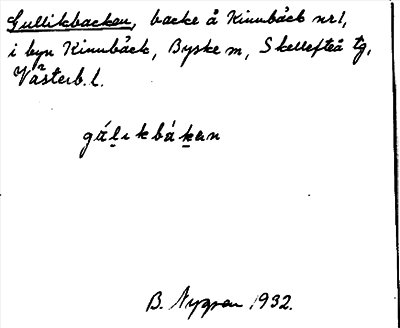 Gullikbacken, backe å Kinnbäck nr 1,
i byn Kinnbäck, Byske sn, Skellefteå tg,
Västerb. l.
B. Nygren 1932.